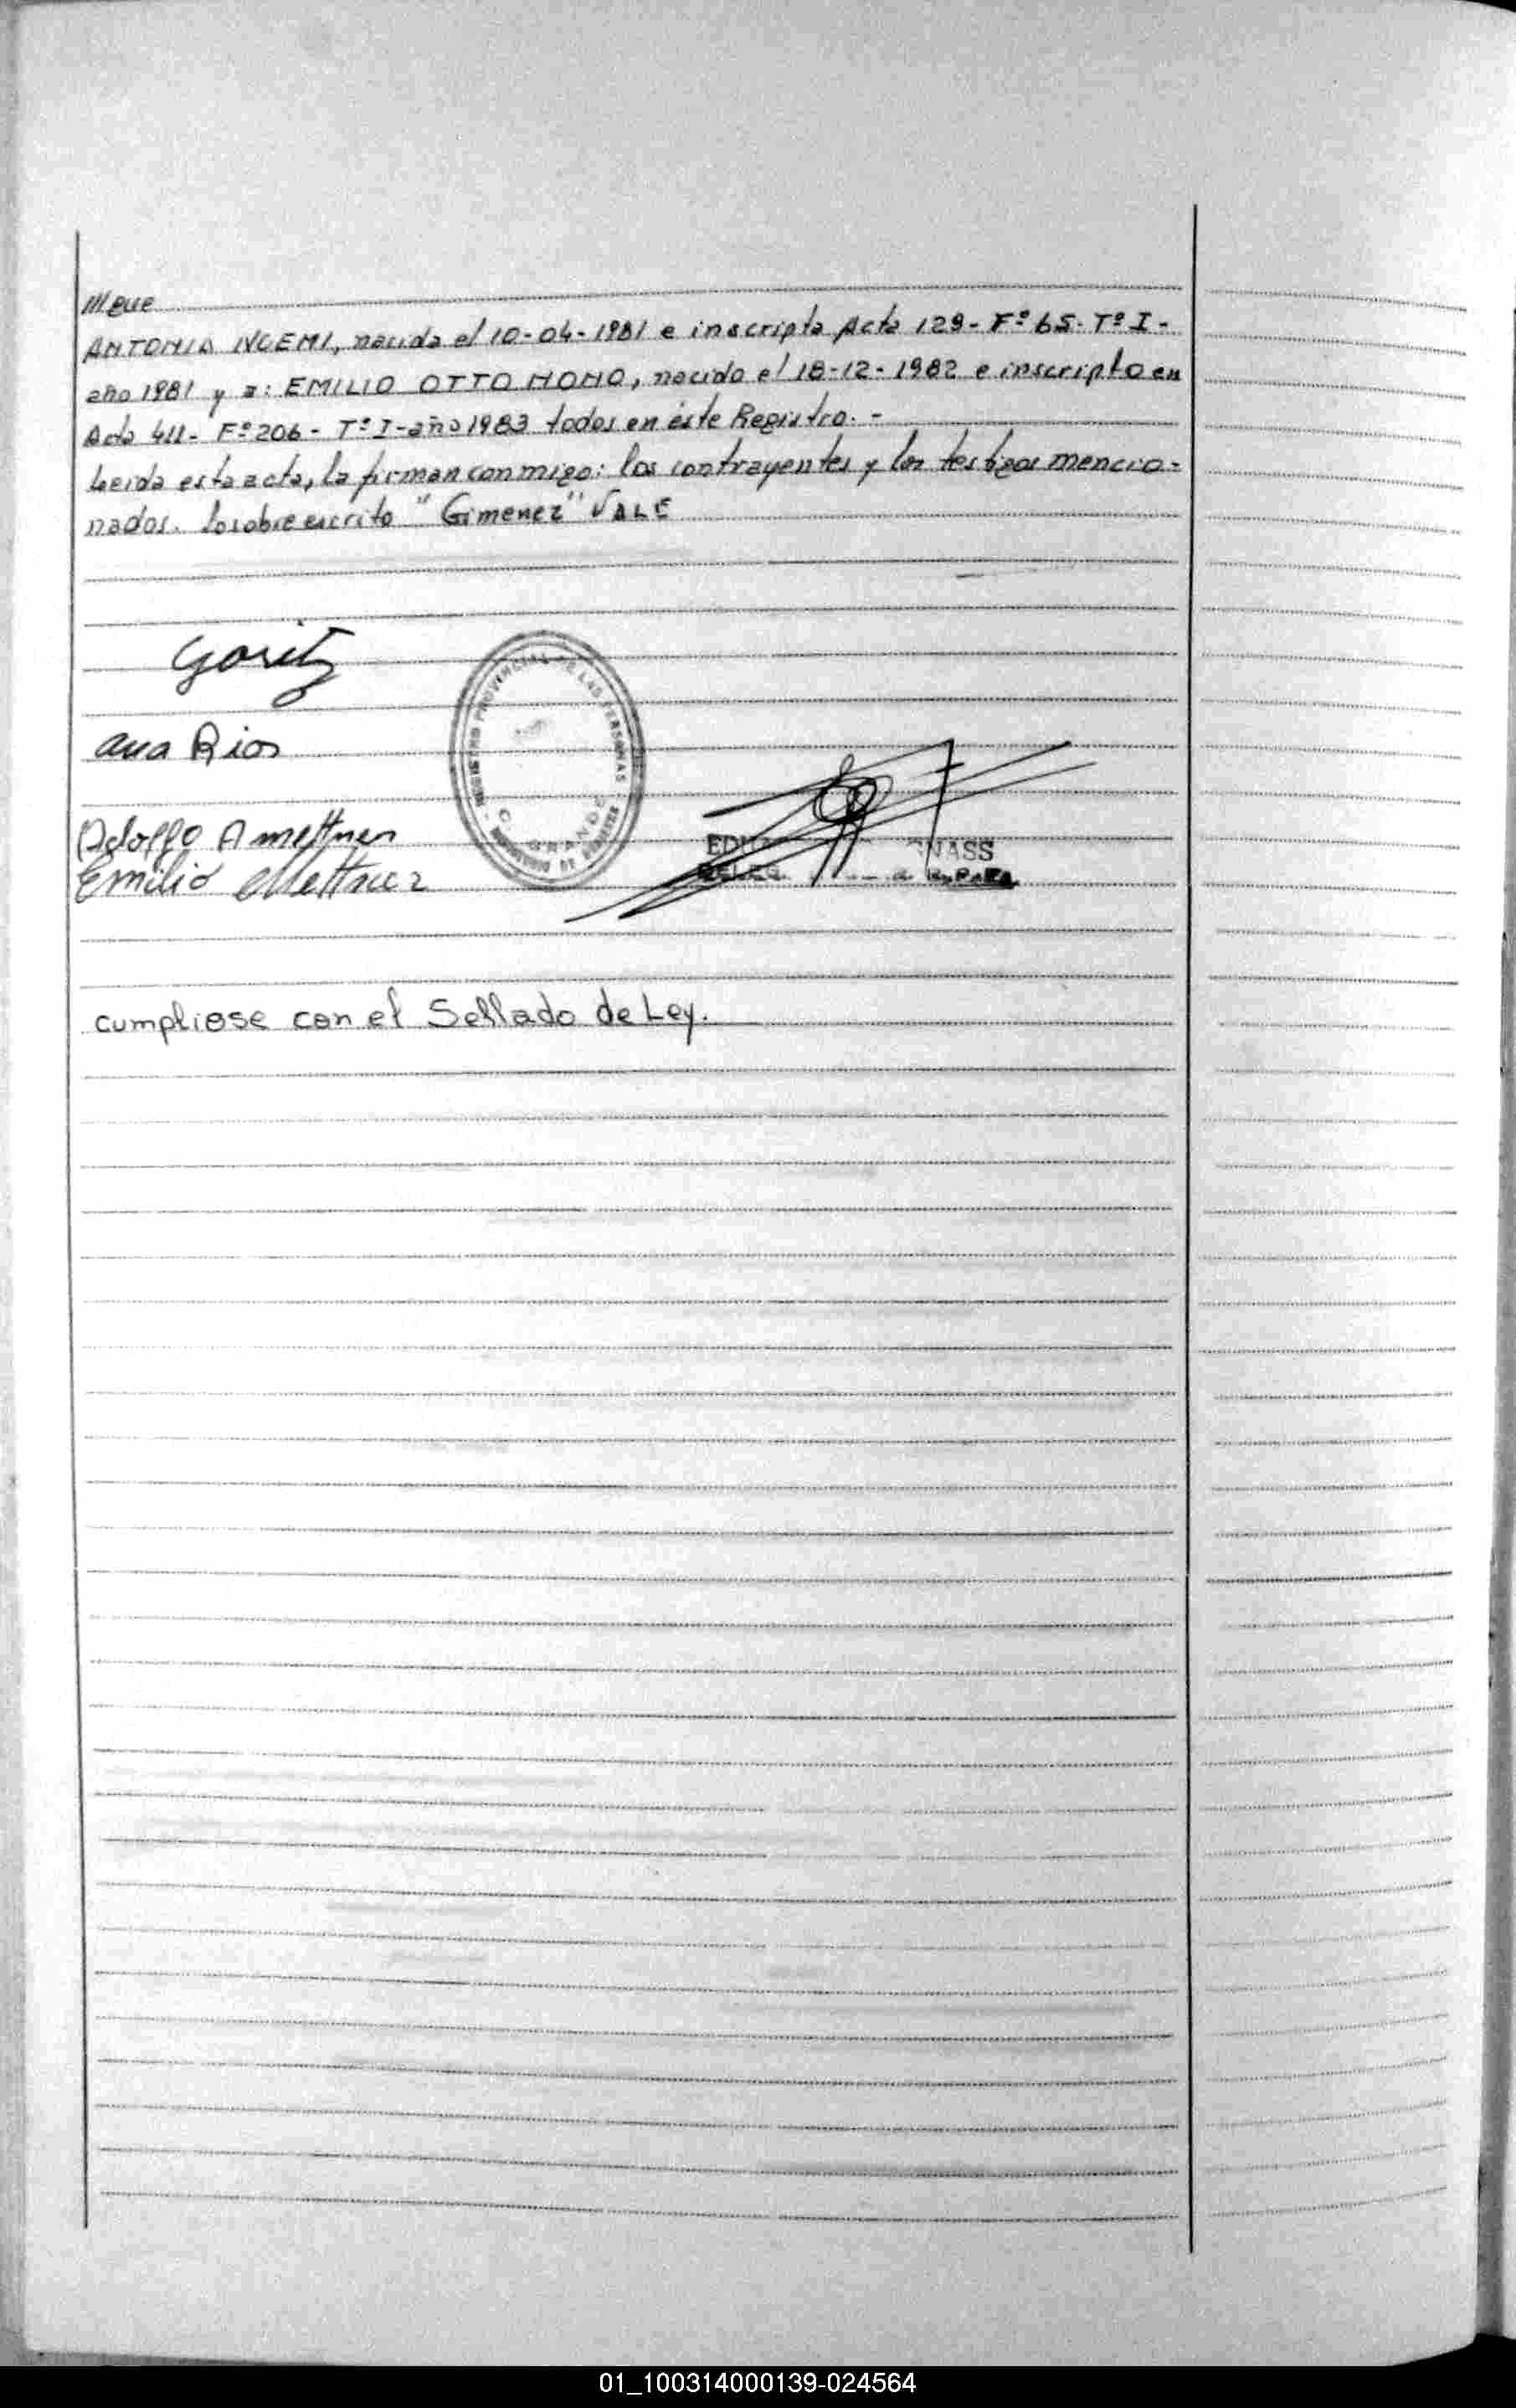 ANTONIA NOEMI, nacida el 10-04-1981 e inscripta Acta 129- Fº 65- Tº I-
año 1981 y a: EMILIO OTTO NONO, nacido el 18-12-1982 e inscripto en
Acta 411- Fº 206- Tº I- año 1983 todos en éste Registro.-
Leida esta acta, la firman conmigo: los contrayentes y los testigos mencio-
nados. lo sobre escrito "Gimenez" VALE
Ana Rios
REGISTRO PROVINCIAL DE LAS PERSONAS
C. GRANDE
Adolfo A mettner
Emilio Mettner
cumpliose con el Sellado de Ley.
01_100314000139-024564